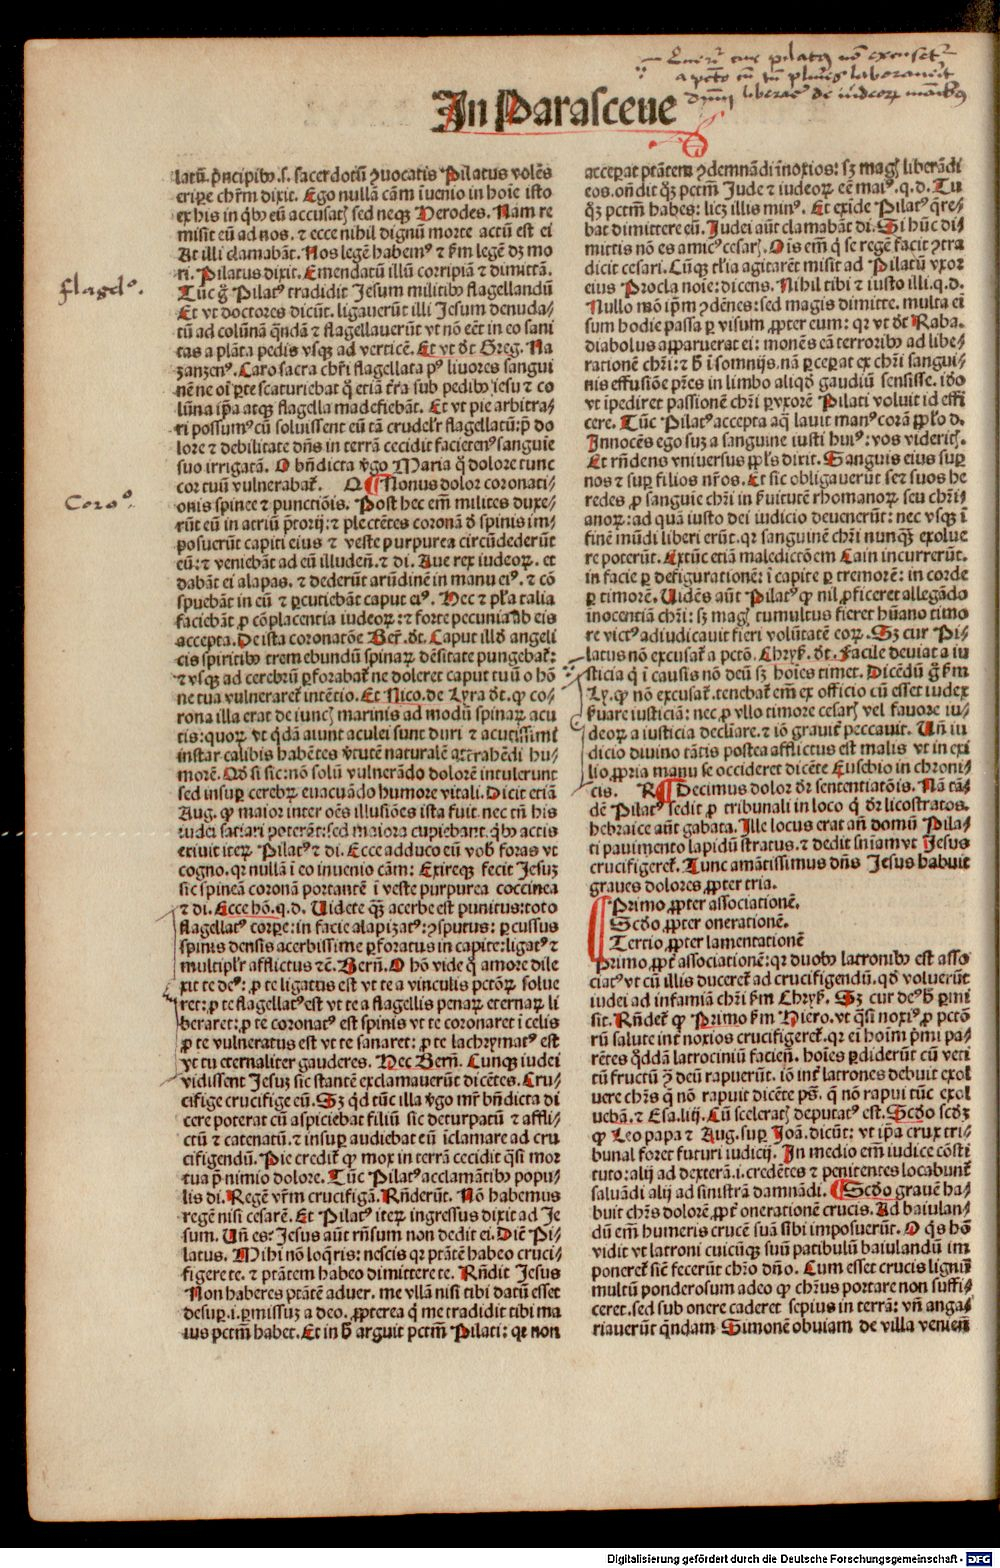 In Parasceue
flagelō.
Corō.
latū. p̄ncipibꝰ .s. sacerdotū ꝯuocatis Pilatus volēs
eripe chr̄m dixit. Ego nullā cām īuenio in hoīe isto
ex his in q̄bꝰ eū accusatꝭ sed neqꝫ Herodes. Nam re
misit eū ad nos. ⁊ ecce nihil dignū morte actū est ei
At illi clamabāt. Nos legē habemꝰ ⁊ ẜm legē dꝫ mo
ri. Pilatus dixit. Emendatū illū corripiā ⁊ dimittā.
Tūc g̊ Pilatꝰ tradidit Jesum militibꝰ flagellandū
Et vt doctores dicūt. ligauerūt illi Jesum denuda⸗
tū ad colūnā q̄ndā ⁊ flagellauerūt vt nō eēt in eo sani
tas a plāta pedis vsqꝫ ad verticē. Et vt dt̄ Greg. Na
zanzenꝰ. Caro sacra chr̄i flagellata pꝰ liuores sangui
nē ne oī ꝑte scaturiebat q̄ etiā tr̄ra sub pedibꝰ iesu ⁊ co
lūna ip̄a atqꝫ flagella madefiebāt. Et vt pie arbitra⸗
ri possumꝰ cū soluissent eū tā crudelr̄ flagellatū: p̄ do
lore ⁊ debilitate dn̄s in terrā cecidit facietenꝰ sanguīe
suo irrigatā. O bn̄dicta v̄go Maria q̄ dolore tunc
cor tuū vulnerabat̄. O ¶ Nonus dolor coronati⸗
onis spinee ⁊ punctiōis. Post hec em̄ milites duxe⸗
rūt eū in atriū p̄torij: ⁊ plectētes coronā d̓ spinis im⸗
posuerūt capiti eius ⁊ veste purpurea circūdederūt
eū: ⁊ veniebāt ad eū illuden̄. ⁊ di. Aue rex iudeoꝝ. et
dabāt ei alapas. ⁊ dederūt arūdinē in manu eiꝰ. ⁊ cō
spuebāt in eū ⁊ ꝑcutiebāt caput eiꝰ. Hec ⁊ pl̄a talia
faciebāt ꝓ cōplacentia iudeoꝝ: ⁊ forte pecunia ab eis
accepta. De ista coronatōe Ber̄. dt̄. Caput illd̓ angeli
cis spiritibꝰ tremebundū spinaꝝ dēsitate pungebat̄:
⁊ vsqꝫ ad cerebrū ꝑforabat̄ ne doleret caput tuū o hō
ne tua vulneraret̄ intētio. Et Nico. de Lyra dt̄. ꝙ co⸗
rona illa erat de iuncꝭ marinis ad modū spinaꝝ acu
tis: quoꝝ vt q̄dā aiunt aculei sunt duri ⁊ acutissimi
instar calibis habētes v̄tutē naturalē attrahēdi hu⸗
morē. Qd̓ si sic: nō solū vulnerādo dolorē intulerunt
sed insuꝑ cerebꝝ euacuādo humore vitali. Dicit etiā
Aug. ꝙ maior inter oēs illusiōes ista fuit. nec tn̄ his
iudei satiari poterāt: sed maiora cupiebant. q̄bꝰ actis
exiuit iteꝝ Pilatꝰ ⁊ di. Ecce adduco eū vob̓ foras vt
cogno. qꝛ nullā ī eo inuenio cām: Exireqꝫ fecit Jesuꝫ
sic spineā coronā portantē ī veste purpurea coccinea
⁊ di. Ecce hō. q.d. Uidete q̄ꝫ acerbe est punitus: toto
flagellatꝰ corꝑe: in facie alapizatꝰ: ꝯsputus: ꝑcussus
spinis densis acerbissime ꝑforatus in capite: ligatꝰ ⁊
multiplr̄ afflictus ⁊c̄. Bern̄. O hō vide q̄ amore dile
xit te deꝰ: ꝓ te ligatus est vt te a vinculis pctōꝝ solue
ret: ꝓ te flagellatꝰ est vt te a flagellis penaꝝ eternaꝝ li
beraret: ꝓ te coronatꝰ est spinis vt te coronaret ī celis
ꝓ te vulneratus est vt te sanaret: ꝓ te lachrymatꝰ est
vt tu eternaliter gauderes. Hec Bern̄. Cunqꝫ iudei
vidissent Jesuꝫ sic stantē exclamauerūt dicētes. Cru⸗
cifige crucifige eū. Sꝫ q̄d tūc illa v̄go mr̄ bn̄dicta di
cere poterat cū aspiciebat filiū sic deturpatū ⁊ affli⸗
ctū ⁊ catenatū. ⁊ insuꝑ audiebat eū īclamare ad cru
cifigendū. Pie credit̄ ꝙ mox in terrā cecidit q̄si mor
tua p̄ nimio dolore. Tūc Pilatꝰ acclamātibꝰ popu⸗
lis di. Regē vr̄m crucifigā. Rn̄derūt. Nō habemus
regē nisi cesarē. Et Pilatꝰ iteꝝ ingressus dixit ad Je
sum. Un̄ es: Jesus aūt rn̄sum non dedit ei. Dic̄ Pi⸗
latus. Mihi nō loq̄ris: nescis qꝛ ptātē habeo cruci⸗
figere te. ⁊ ptātem habeo dimittere te. Rn̄dit Jesus
Non haberes ptātē aduer. me vllā nisi tibi datū esset
desuꝑ. i. ꝑmissuꝫ a deo. ꝓpterea q̄ me tradidit tibi ma
ius pctm̄ habet. Et in h̓ arguit pctm̄ Pilati: qꝛ non
acceꝑat ptātem ꝯdemnādi īnoxios: sꝫ magꝭ liberādi
eos. on̄dit q̄ꝫ pctm̄ Jude ⁊ iudeoꝝ eē maiꝰ. q.d. Tu
q̄ꝫ pctm̄ habes: licꝫ illis minꝰ. Et exīde Pilatꝰ q̄re⸗
bat dimittere eū. Judei aūt clamabāt di. Si hūc di⸗
mittis nō es amicꝰ cesarꝭ. Oīs em̄ q̄ se regē facit ꝯtra
dicit cesari. Cūqꝫ tl̄ia agitarēt misit ad Pilatū vxor
eius Procla noīe: dicens. Nihil tibi ⁊ iusto illi. q.d.
Nullo mō ip̄m ꝯdēnes: sed magis dimitte. multa ei
sum hodie passa ꝑ visum ꝓpter eum: qꝛ vt dt̄ Raba.
diabolus apparuerat ei: monēs eā terroribꝰ ad libe⸗
rationē chr̄i: ⁊ h̓ ī somnijs. nā ꝑceꝑat ex chr̄i sangui⸗
nis effusiōe pr̄es in limbo aliqd̓ gaudiū sensisse. iō
vt īpediret passionē chr̄i ꝑ vxorē Pilati voluit id effi
cere. Tūc Pilatꝰ accepta aq̄ lauit manꝰ corā ppl̓o d.
Innocēs ego suꝫ a sanguine iusti huiꝰ: vos videritꝭ.
Et rn̄dens vniuersus ppl̓s dixit. Sanguis eius suꝑ
nos ⁊ suꝑ filios nr̄os. Et sic obligauerūt se ⁊ suos he
redes ꝓ sanguie chr̄i in ẜuitutē rhomanoꝝ seu chr̄i⸗
anoꝝ: ad quā iusto dei iudicio deuenerūt: nec vsqꝫ ī
finē mūdi liberi erūt. qꝛ sanguinē chr̄i nunqꝫ exolue
re poterūt. Extūc etiā maledictōem Cain incurrerūt.
in facie ꝑ defigurationē: ī capite ꝑ tremorē: in corde
ꝑ timorē. Uidēs aūt Pilatꝰ ꝙ nil ꝓficeret allegādo
inocentiā chr̄i: sꝫ magꝭ tumultus fieret hūano timo
re victꝰ adiudicauit fieri volūtatē eoꝝ. Sꝫ cur Pi⸗
latus nō excusat̄ a pctō. Chryẜ. dt̄. Facile deuiat a iu
sticia q̄ ī causis nō deū sꝫ hoīes timet. Dicēdū g̊ ẜm
Ly. ꝙ nō excusat̄. tenebat̄ em̄ ex officio cū esset iudex
ẜuare iusticiā: nec ꝓ vllo timore cesarꝭ vel fauore iu⸗
deoꝝ a iusticia declīare. ⁊ iō grauit̄ peccauit. Un̄ iu
dicio diuino tātis postea afflictus est malis vt in exi
lio ꝓpria manu se occideret dicēte Eusebio in chroni⸗
cis. R ¶ Decimus dolor dr̄ sententiatōis. Nā tā⸗
dē Pilatꝰ sedit ꝓ tribunali in loco q̄ dr̄ licostratos.
hebraice aūt gabata. Ille locus erat an̄ domū Pila⸗
ti pauimento lapidū stratus. ⁊ dedit sn̄iam vt Jesus
crucifigeret̄. Tunc amātissimus dn̄s Jesus habuit
graues dolores ꝓpter tria.
Primo ꝓpter associationē.
Scd̓o ꝓpter onerationē.
Tertio ꝓpter lamentationē
Primo ꝓpt̄ associationē: qꝛ duobꝰ latronibꝰ est asso
ciatꝰ vt cū illis duceret̄ ad crucifigendū. qd̓ voluerūt
iudei ad infamiā chr̄i ẜm Chryẜ. Sꝫ cur deꝰ h̓ ꝑmi
sit. Rn̄det̄ ꝙ Primo ẜm Hiero. vt q̄si noxiꝰ ꝓ pctō
rū salute int̄ noxios crucifigeret̄. qꝛ ei hoīm p̄mi pa⸗
rētes q̄ddā latrociniū facien̄. hoīes ꝑdiderūt cū veti
tū fructū ꝯ̄ deū rapuerūt. iō int̄ latrones debuit exol
uere chr̄s q̄ nō rapuit dicēte pṡ. q̄ nō rapui tūc exol
uebā. ⁊ Esa. liij. Cū sceleratꝭ deputatꝰ est. Scd̓o scd̓ꝫ
ꝙ Leo papa ⁊ Aug. suꝑ Joā. dicūt: vt ip̄a crux tri⸗
bunal foret futuri iudicij. In medio em̄ iudice cōsti
tuto: alij ad dexterā. i. credētes ⁊ penitentes locabunt̄
saluādi alij ad sinistrā damnādi. ¶ Scd̓o grauē ha⸗
buit chr̄s dolorē ꝓpt̄ onerationē crucis. Ad baiulan⸗
dū em̄ humeris crucē suā sibi imposuerūt. O q̄s hō
vidit vt latroni cuicūqꝫ suū patibulū baiulandū im
poneret̄ sic̄ fecerūt chr̄o dn̄o. Cum esset crucis lignū
multū ponderosum adeo ꝙ chr̄us portare non suffi⸗
ceret. sed sub onere caderet sepius in terrā: vn̄ anga⸗
riauerūt q̄ndam Simonē obuiam de villa venien̄
Digitalisierung gefördert durch die Deutsche Forschungsgemeinschaft - DFG